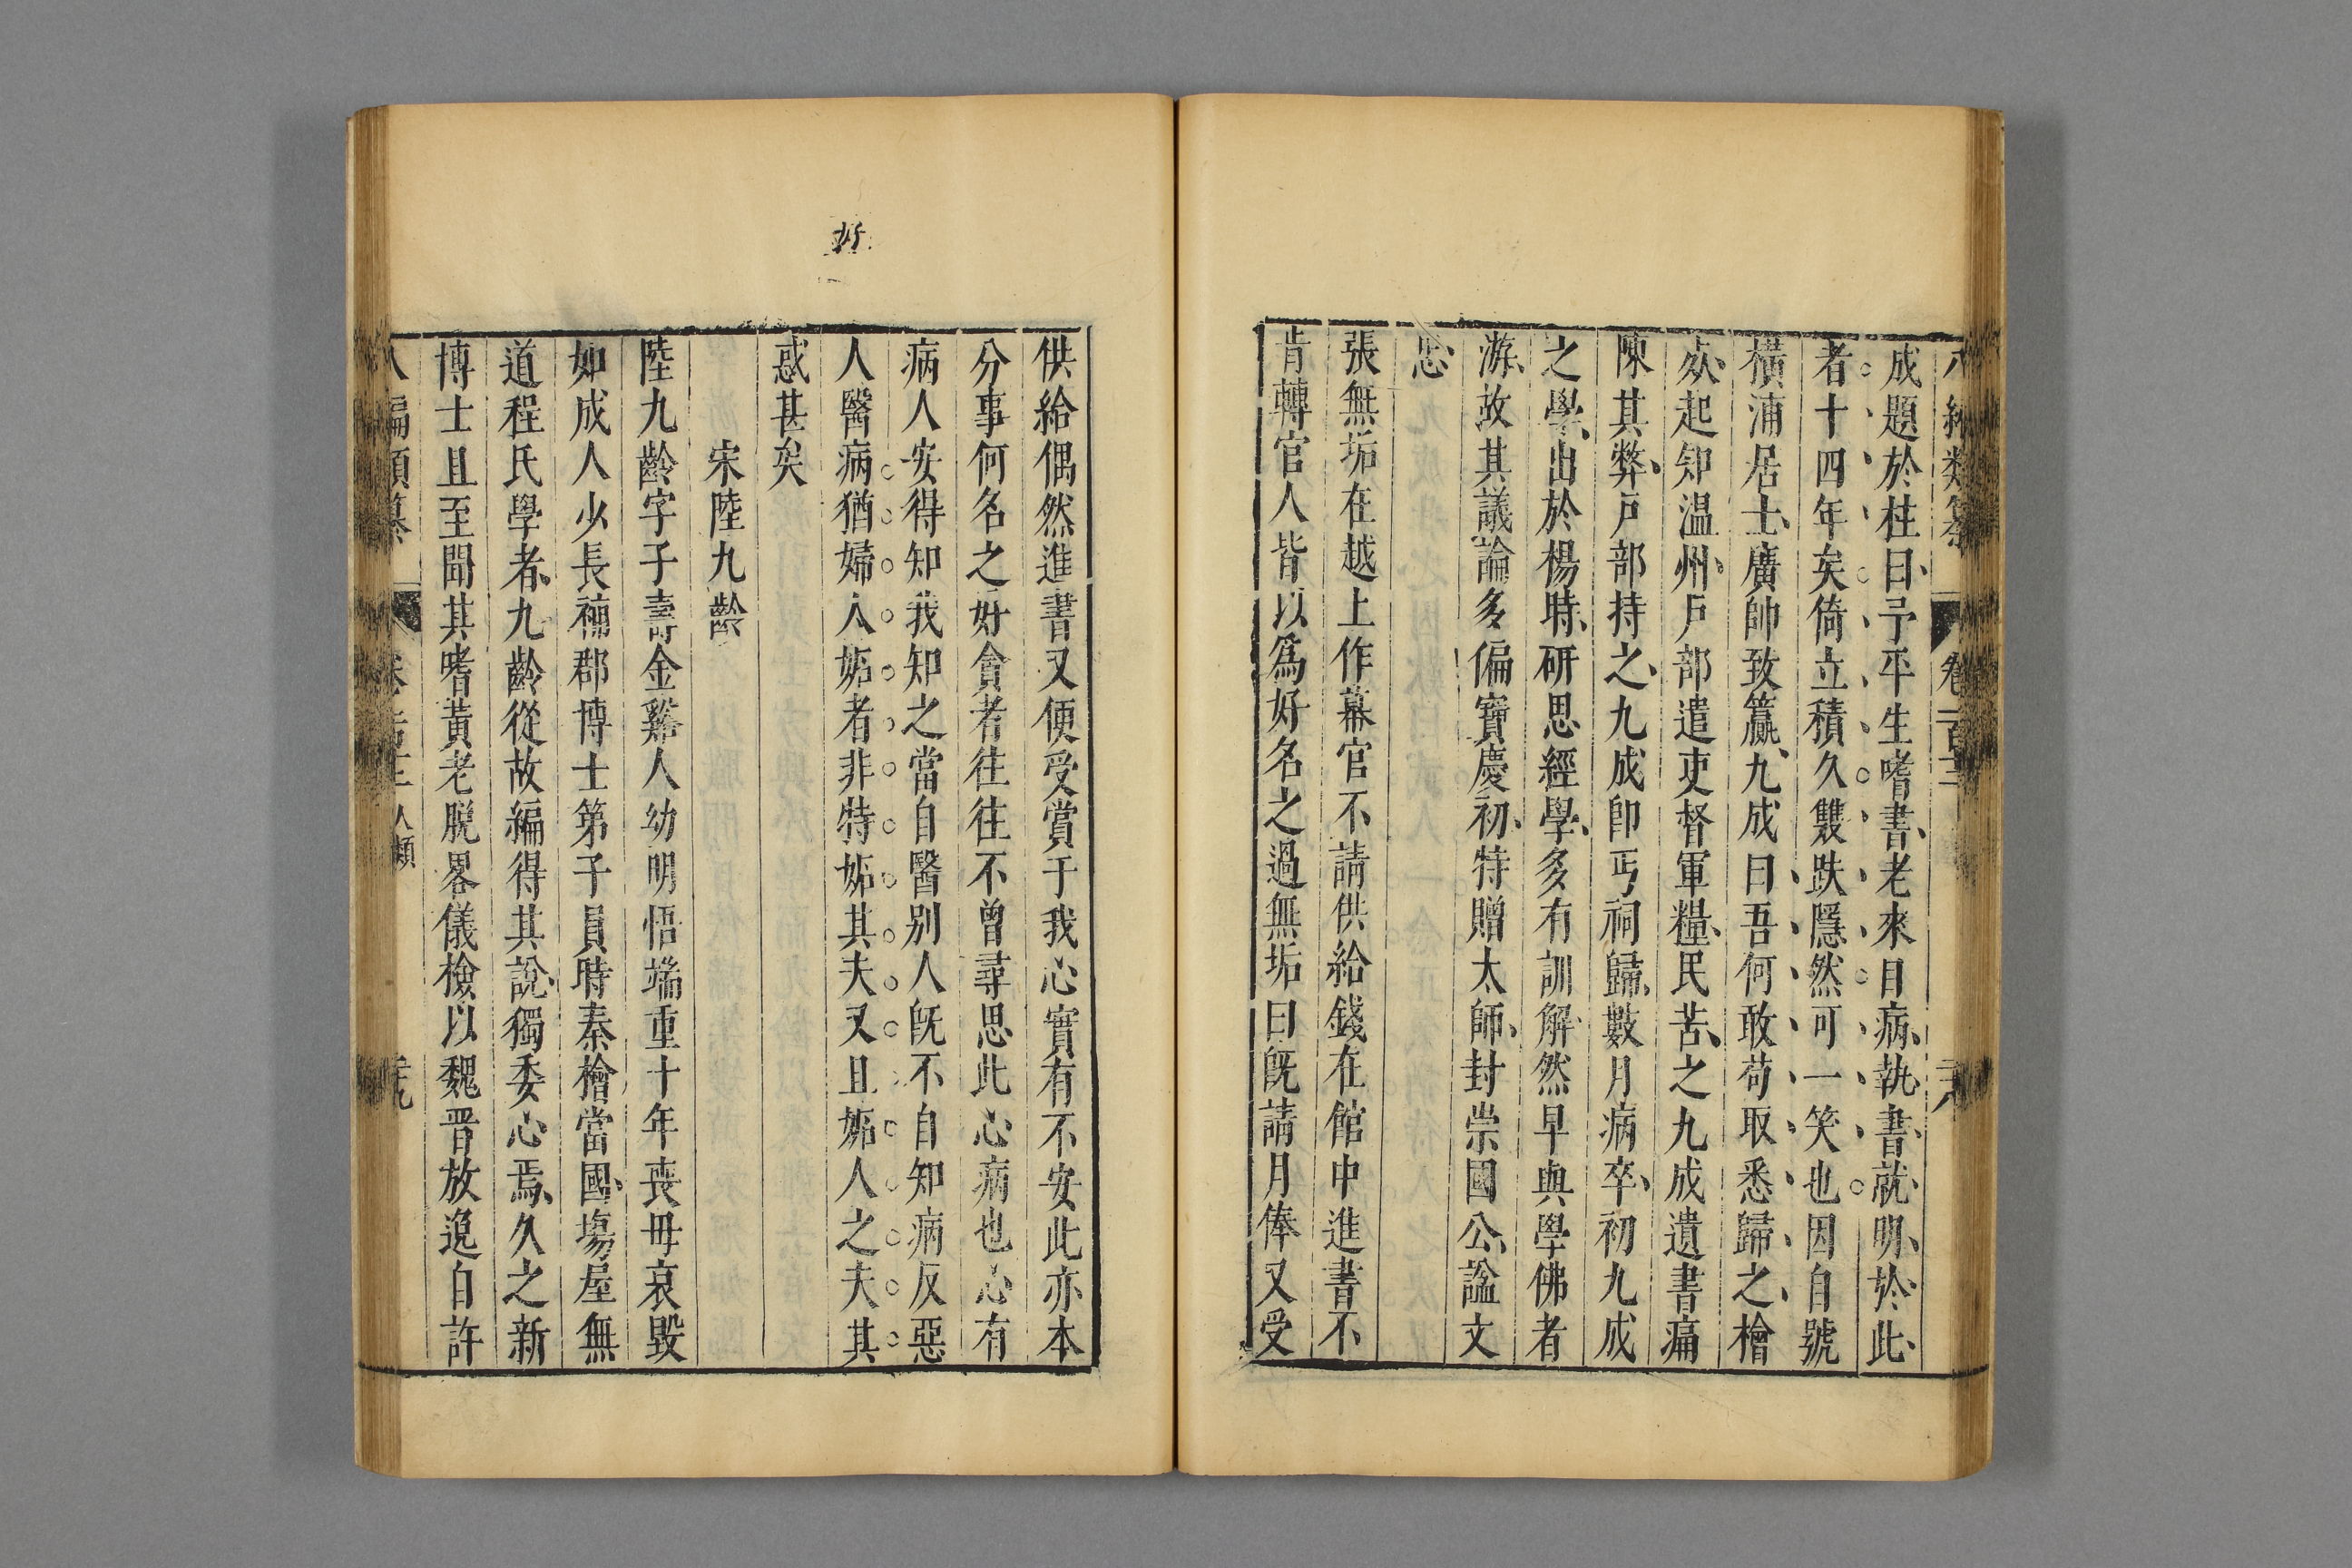 八編類纂 卷一百三
成題於柱曰予平生嗜書老來目病執書就明於此
者十四年矣倚立積久雙趺隱然可一笑也因自號
橫浦居士廣帥致籯九成曰吾何敢苟取悉歸之檜
死起知温州戸部遣吏督軍糧民苦之九成遺書痛
陳其弊戸部持之九成卽丐祠歸數月病卒初九成
之學出於楊時研思經學多有訓解然早與學佛者
游故其議論多偏寶慶初特贈太師封崇國公諡文
忠
張無垢在越上作幕官不請供給錢在館中進書不
肯轉官人皆以爲好名之過無垢曰旣請月俸又受
供給偶然進書又便受賞于我心實有不安此亦本
分事何名之好貪者往往不曾尋思此心病也心有
病人安得知我知之當自醫别人旣不自知病反惡
人醫病猶婦人妬者非特妬其夫又且妬人之夫其
惑甚矣
宋陸九齡
陸九齡字子壽金谿人幼明悟端重十年喪母哀毀
如成人少長補郡博士第子員時秦檜當國塲屋無
道程氏學者九齡從故編得其說獨委心焉久之新
博士且至聞其嗜黃老脫畧儀檢以魏晋放逸自許
八編類纂 卷一百三 人類 二十九
好